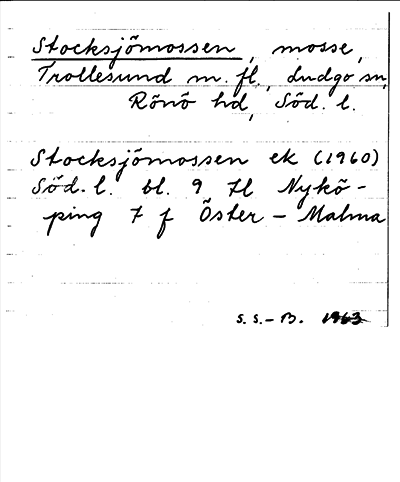 Stocksjömossen, mosse,
Trollesund m. fl., Ludgo sn,
Rönö hd, Söd. l.
Stocksjömossen ek (1960)
Söd. l. bl. 9 H Nykö-
ping 7 f Öster-Malma
S. S.-B. 1963